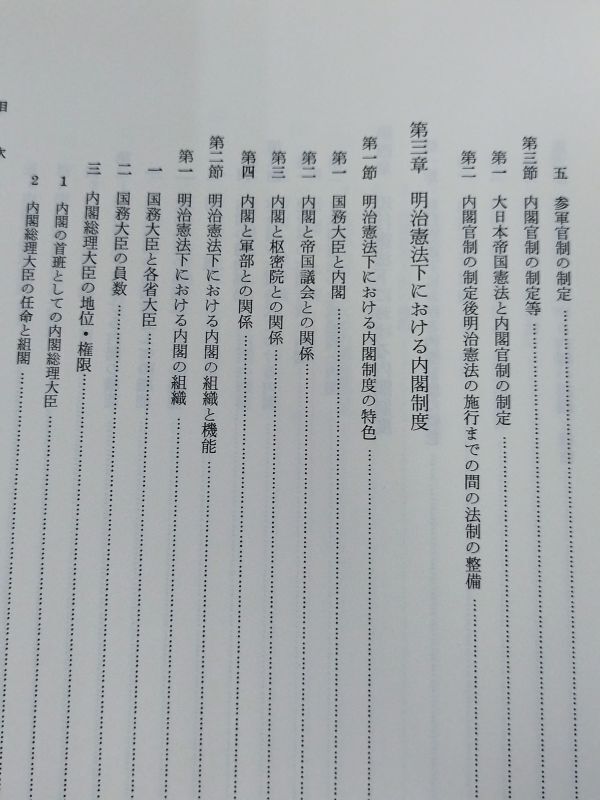 五　参軍官制の制定
第三節　内閣官制の制定等
第一　大日本帝国憲法と内閣官制の制定
第二　内閣官制の制定後明治憲法の施行までの間の法制の整備
第三章　明治憲法下における内閣制度
第一節　明治憲法下における内閣制度の特色
第一　国務大臣と内閣
第二　内閣と帝国議会との関係
第三　内閣と枢密院との関係
第四　内閣と軍部との関係
第二節　明治憲法下における内閣の組織と機能
第一　明治憲法下における内閣の組織
一　国務大臣と各省大臣
二　国務大臣の員数
三　内閣総理大臣の地位・権限
1　内閣の首班としての内閣総理大臣
2　内閣総理大臣の任命と組閣
目　次